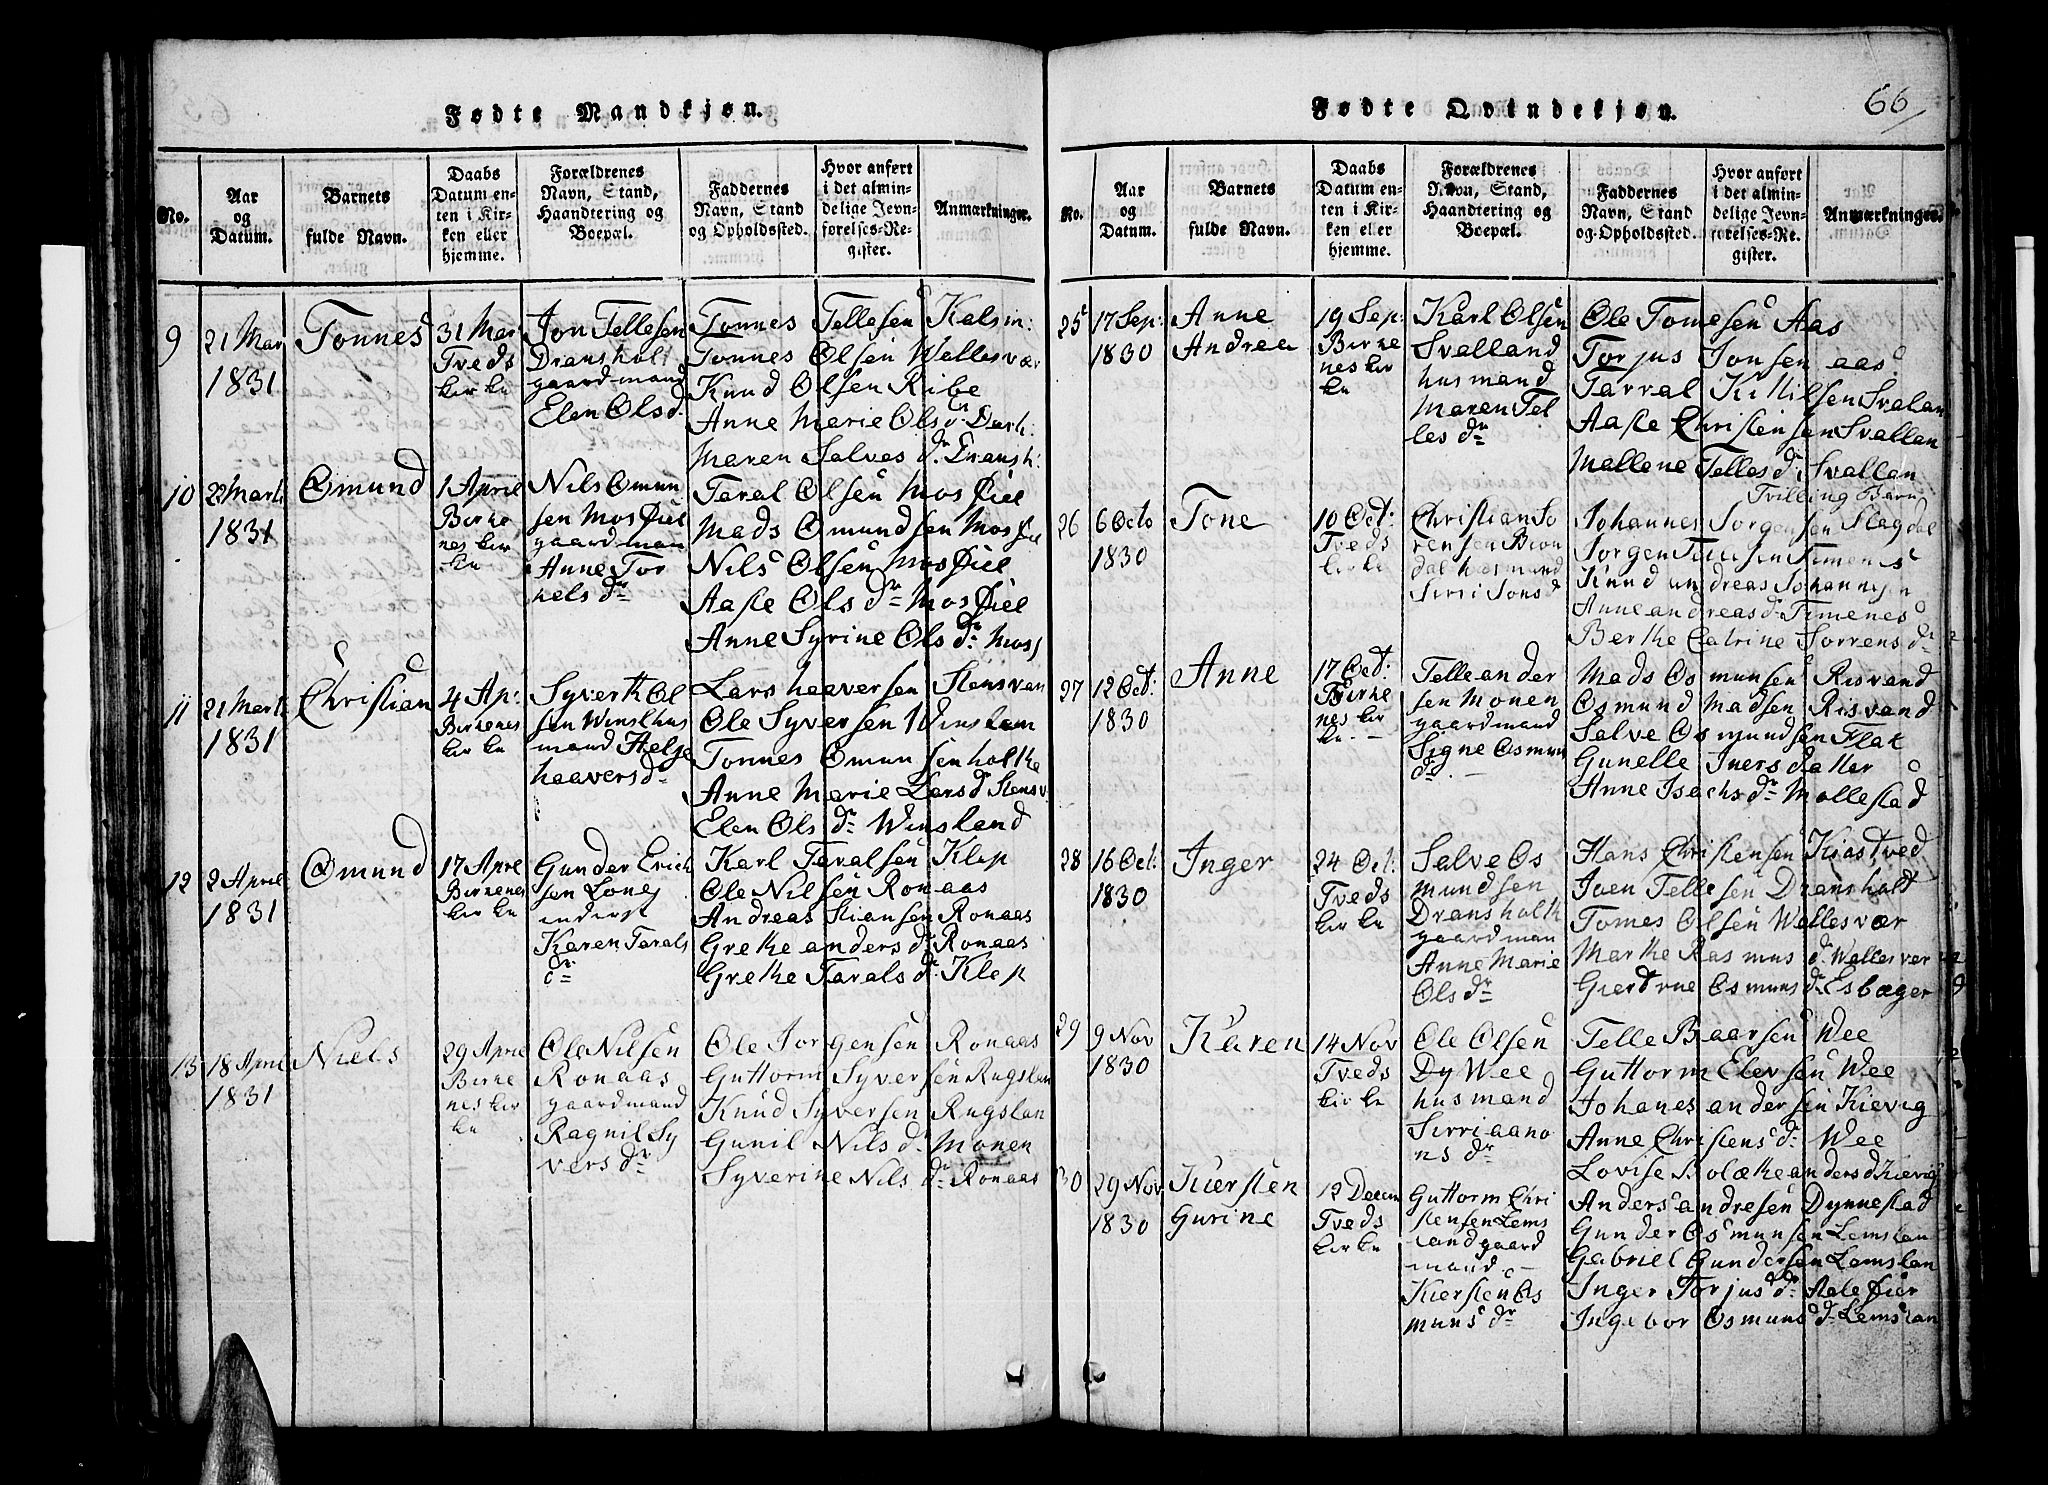 Fødte Mandkjøn.
No.
Aar
og
Datum.
Barnets
fulde Navn.
Daabs
Datum en-
ten i Kir-
ken eller
hjemme.
Forældrenes
Navn, Stand,
Haandtering og
Boepæl.
Faddernes
Navn, Stand
og Opholdssted.
Hvor anført
i det almin-
delige Jevn-
førelses-Re-
gister.
Anmærkninger.
9
21 Mar
1831
Tonnes
31 Mar
Tveds
kirke
Jon Tellesen
Dransholt
gaardmand
Elen Olsd.
Tonnes Tellesen Kalsm:
Tonnes Olsen Wellesvær
Knud Olsen Ribe
Anne Marie Olsdr Darh:
Maren Salves dr. Dransh:
10
22 Marti
1831
Omund
1 April
Birke
nes kir
ke
Nils Omun
sen Mosfiel
gaardman
Anne Tor
kels dr
Taral Olsen Mosfiel
Mads Omundsen Mosfiel
Nils Olsen Mosfiel
Aase Ols dr Mosfiel
Anne Syrine Ols dr Mosf
11
21 Mart:
1831
Christian
4 Ap:
Birkenes
kirke
Syvert Ol
sen Winsl hus
mand Helje
haavers dr
Lars haaversen Stensvan
Ole Syversen Winslan
Tonnes Omunsen holthe
Anne Marie Larsd Stensv.
Elen Ols dr Winsland
12
2 April
1831
Omund
17 April
Birkenes
kirke
Gunder Erich
sen Lonej
inderst
Karen Tarals
dr
Karl Taralsen Klep
Ole Nilsen Ronaas
Andreas Stiansen Ronaas
Grethe anders dr Ronaas
Grethe Tarals dr Klep
13
18 April
1831
Niels
29 April
Birke
nes kir
ke
Ole Nilsen
Ronaas
gaardmand
Ragnil Sy
vers dr
Ole Jorgensen Ronaas
Guttorm Syversen Rugslan
Knud Syversen Rugslan
Gunil Nils dr Monen
Syverine Nils dr Ronaas
Fødte Qvindekjøn.
66
No.
Aar
og
Datum.
Barnets
fulde Navn.
Daabs
Datum en-
ten i Kir-
ken eller
hjemme.
Forældrenes
Navn, Stand,
Haandtering og
Boepæl.
Faddernes
Navn, Stand
og Opholdssted.
Hvor anført
i det almin-
delige Jevn-
førelses-Re-
gister.
Anmærkninger.
25
17 Sep:
1830
Anne
Andrea
19 Sep:
Birke
nes kir
ke
Karl Olsen
Svalland
husmand
Maren Tel
les dr
Ole Tomesen Aas
Torjus Jonsen aas
Tarral Kittilsen Svalan
Aase Christensen Svallan
Mallene Telles d. Svallan
Tvilling Barn
26
6 Octo
1830
Tone
10 Oct:
Tveds
kirke
Christian So
rensen Bion
dal husmand
Sirri Sons d
Johannes Jorgensen Slagdal
Jorgen Tuesen Timenes
Knud andreas Johannesen
Anne andreas dr Timenes
Berthe Catrine Sorrens dr
27
12 Oct:
1830
Anne
17 Oct:
Birke
nes kir
ke
Telle ander
sen Monen
gaardmand
Signe Osmun
dr
Mads Osmunsen Risvand
Osmund Madsen Risvand
Salve Osmundsen Flak
Gunelle Iversdatter
Anne Isachs dr Mollestad
28
16 Oct:
1830
Inger
24 Oct:
Tveds
kirke
Salve Os
mundsen
Dransholth
gaardman
Anne Marie
Ols dr
Hans Christensen Kiostved
Joen Tellesen Dransholt
Tomes Olsen Wellesvær
Marthe Rasmus dr Wellesver
Giertrue Osmuns dr Esbæger
29
9 Nov
1830
Karen
14 Nov
Tveds
kirke
Ole Olsen
Dy Wee
husmand
Sirri aano
ns dr
Telle Baarsen Wee
Guttorm Elevsen Wee
Johanes andersen Kievig
Anne Christens dr Wee
Lovise Bolæthe anders d Kievig
30
29 Nov
1830
Kiersten
Gurine
12 Decem
Tveds
kirke
Guttorm Chri
stensen Lems
land gaard
mand
Kiersten Os
muns dr
Anders andresen Dynnestad
Gunder Osmunsen Lemslan
Gabriel Gundersen Lemslan
Inger Torjus dr Stalefier
Ingebor Osmuns dr Lemslan